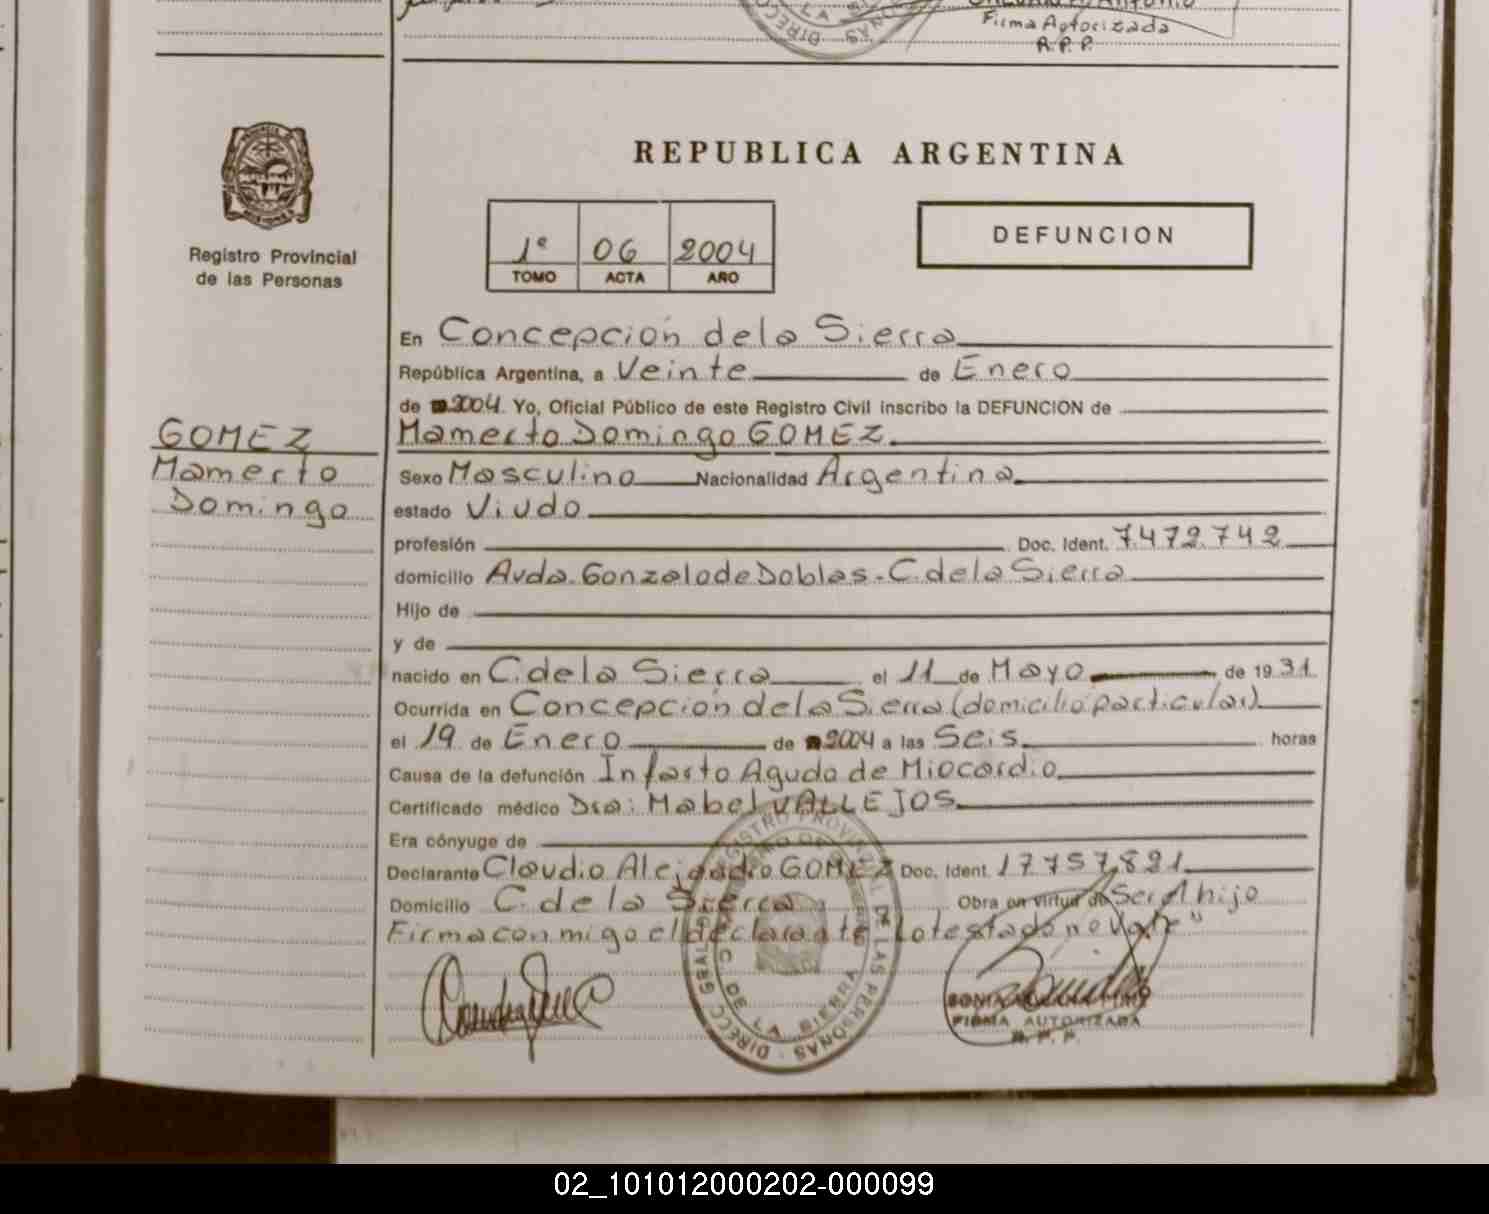 Firma Autorizada
R.P.P.
REPUBLICA ARGENTINA
Registro Provincial
de las Personas
1º 06 2004
TOMO ACTA AÑO
DEFUNCION
En Concepción de la Sierra
República Argentina, a Veinte de Enero
de 2004 Yo, Oficial Público de este Registro Civil inscribo la DEFUNCION de
GOMEZ
Mamerto
Domingo
Mamerto Domingo GOMEZ
Sexo Masculino Nacionalidad Argentina
estado Viudo
profesión Doc. Ident. 7.472.742
domicilio Avda. Gonzalo de Doblas - C. de la Sierra
Hijo de
y de
nacido en C. de la Sierra el 11 de Mayo de 1931
Ocurrida en Concepción de la Sierra (domicilio particular)
el 19 de Enero de 2004 a las Seis horas
Causa de la defunción Infarto Agudo de Miocardio
Certificado médico Dra: Mabel VALLEJOS
Era cónyuge de
Declarante Claudio Alejandro GOMEZ Doc. Ident. 17.757.821
Domicilio C. de la Sierra Obra en virtud de Ser el hijo
Firma conmigo el declarante "Lo testado no Vale"
FIRMA AUTORIZADA
R. P. P.
02_101012000202-000099